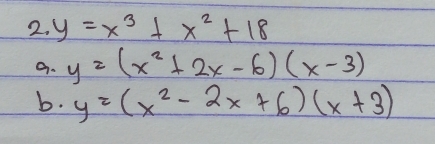 2. y = x³ + x² + 18
a. y = (x² + 2x - 6)(x - 3)
b. y = (x² - 2x + 6)(x + 3)